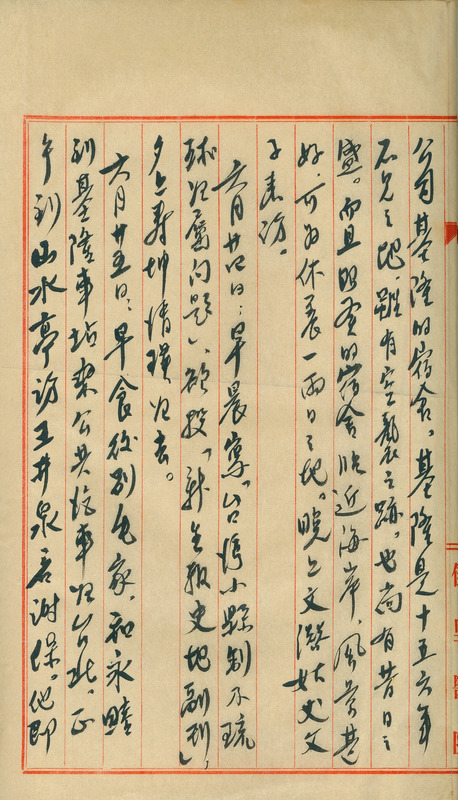 公司基隆的宿舍。基隆是十五六年
不見之地、雖有空襲之跡。也尚有昔日之
盛。而且的宿舍臨近海岸、風景甚
好、可為休養一兩日之地。晚上文潛姑丈文
子來訪。
六月廿四日：早晨寫「台灣小縣制不琉
球歸屬問題」、欲投「新生報史地副刊」、
夕上壽坤清瑾歸去。
六月廿五日：早食後別毛家、和永瞻
到基隆車站乘公共汽車歸台北。正
午到山水亭訪王井泉君謝保。他即